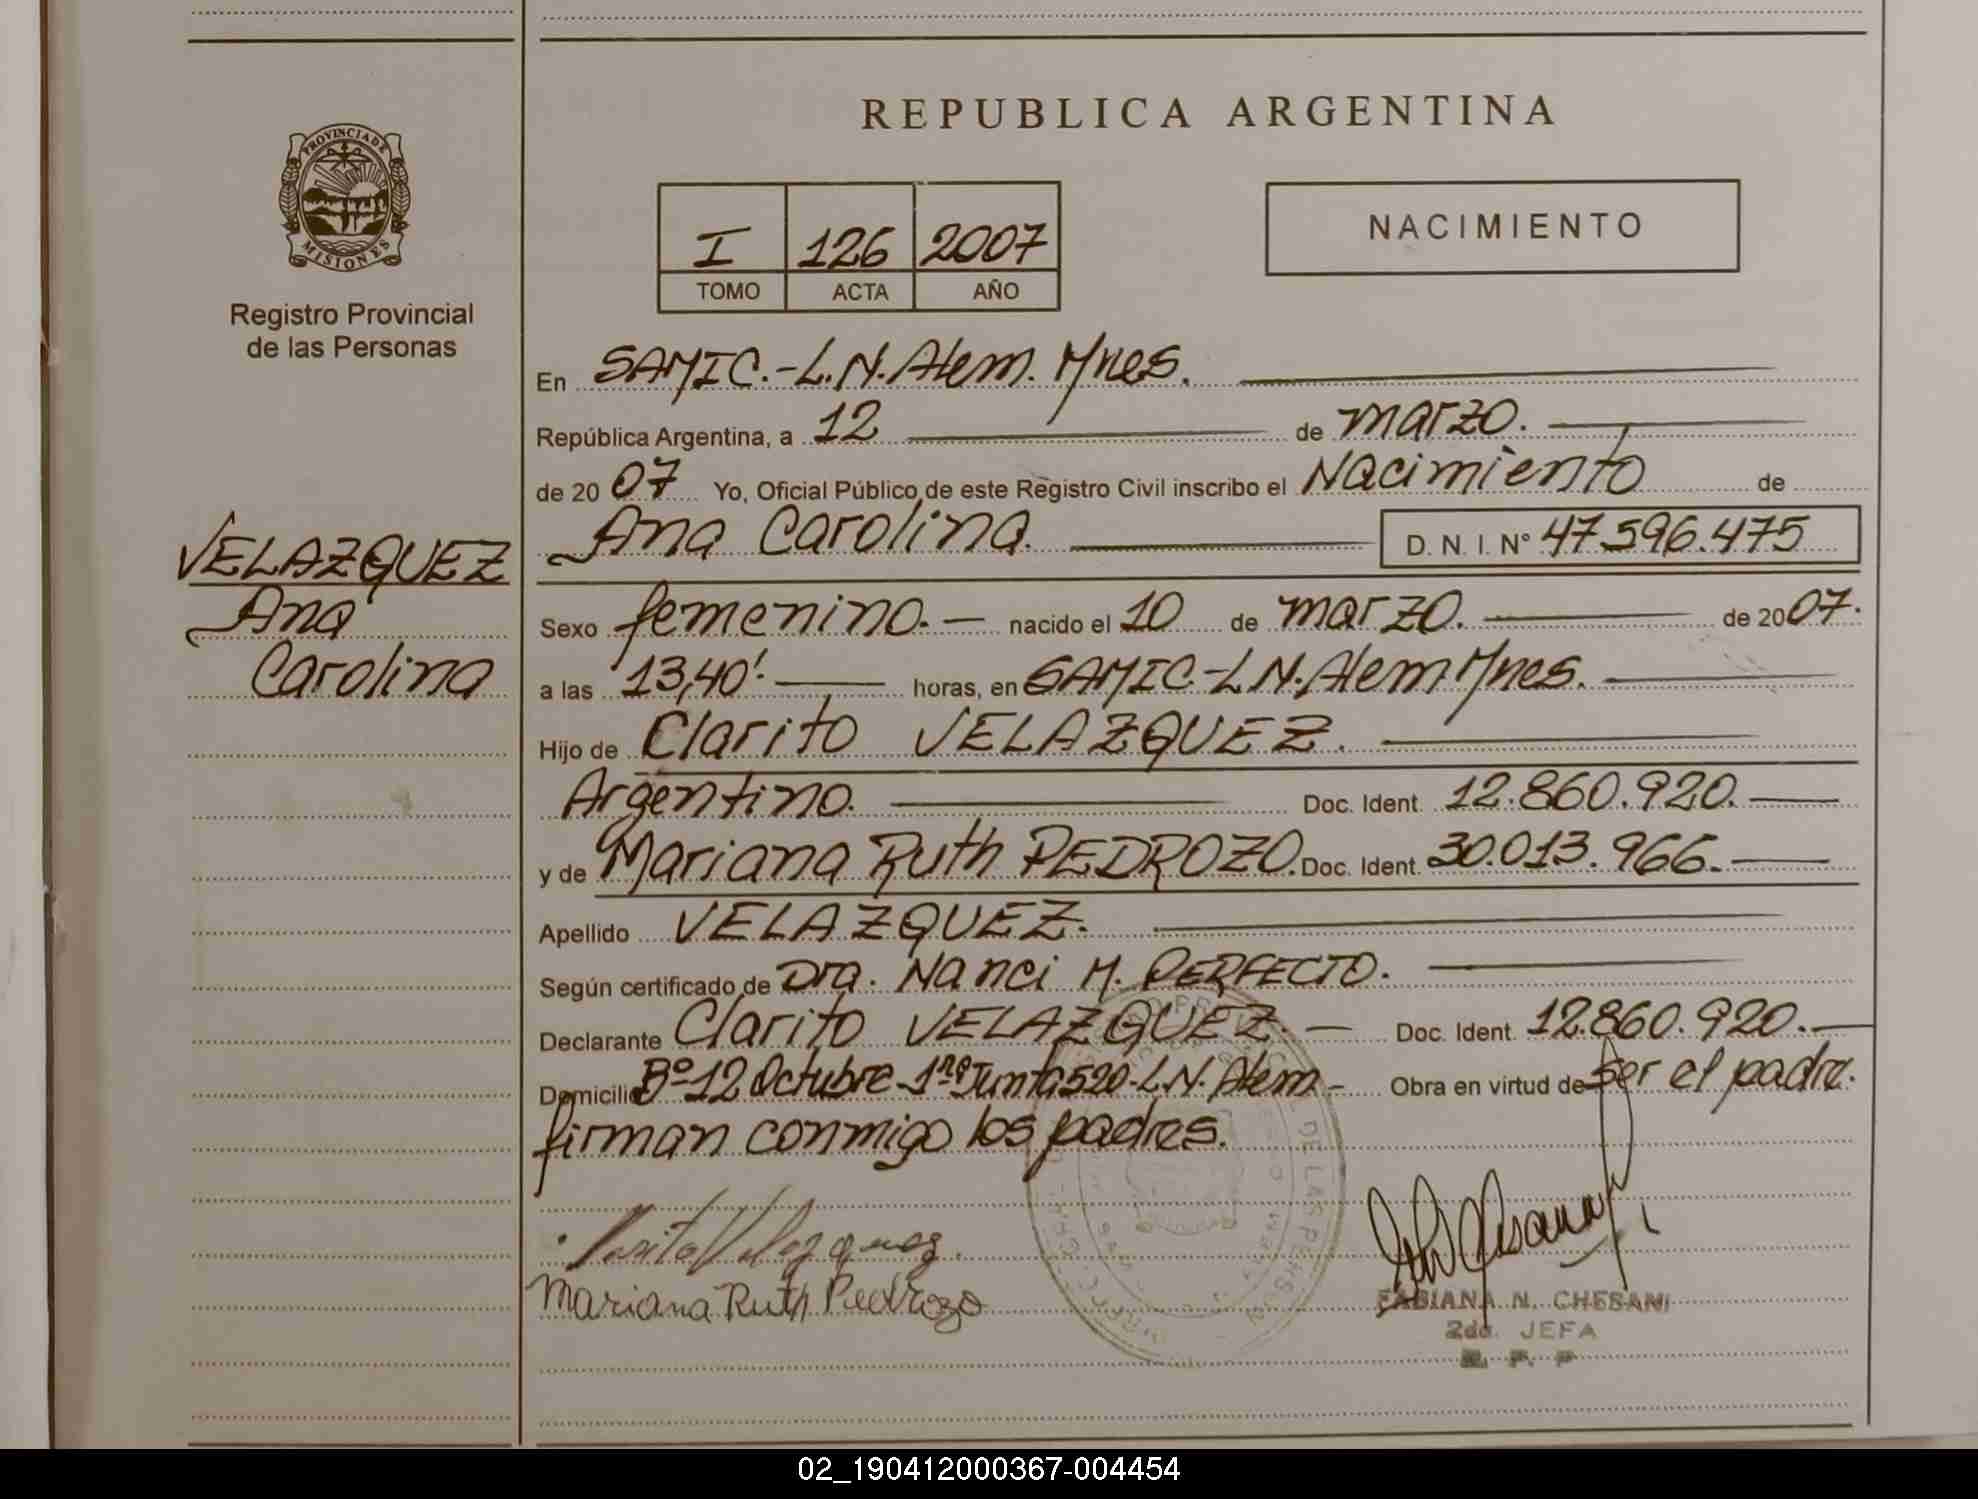 PROVINCIA DE
MISIONES
Registro Provincial
de las Personas
VELAZQUEZ
Ana
Carolina
REPUBLICA ARGENTINA
I 126 2007
TOMO ACTA AÑO
NACIMIENTO
En SAMIC.-L.N.Alem. Mnes.
República Argentina, a 12 de marzo.
de 20 07 Yo, Oficial Público de este Registro Civil inscribo el Nacimiento de
Ana Carolina. D. N. I. N° 47.596.475
Sexo femenino.- nacido el 10 de marzo. de 20 07.
a las 13,40'. horas, en SAMIC-L.N.Alem Mnes.
Hijo de Clarito VELAZQUEZ.
Argentino. Doc. Ident. 12.860.920.
y de Mariana Ruth PEDROZO. Doc. Ident. 30.013.966.
Apellido VELAZQUEZ.
Según certificado de Dra. Nanci M. PERFECTO.
Declarante Clarito VELAZQUEZ.- Doc. Ident. 12.860.920.
Domicilio Bº 12 Octubre-1ra Junta 520-L.N. Alem- Obra en virtud de ser el padre.
firman conmigo los padres.
Velazquez
Mariana Ruth Pedrozo
FABIANA N. CHESANI
2da. JEFA
R. P. P
02_190412000367-004454